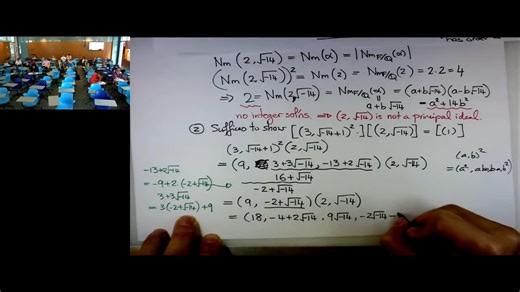 has order 2
Nm(2,√-14) = Nm(α) = |Nm_{F/Q}(α)|
(Nm(2,√-14))² = Nm(2) = Nm_{F/Q}(2) = 2·2 = 4
⇒ 2 = Nm(2,√-14) = Nm_{F/Q}(a+b√-14) = (a+b√-14)(a-b√-14) = a²+14b²
no integer solns. ⇒ (2,√-14) is not a principal ideal.
② Suffices to show [(3,√-14+1)²].[(2,√-14)] = [(1)]
(3,√-14+1)²(2,√-14)
= (9, 3+3√-14, -13+2√-14)(2,√-14)
16+√-14
-2+√-14
= (9, -2+√-14)(2,√-14)
= (18, -4+2√-14, 9√-14, -2√-14-
(a,b)²
= (a²,ab,ba,b²)
-13+2√-14
= -9+2·(-2+√-14)
3+3√-14
= 3(-2+√-14)+9